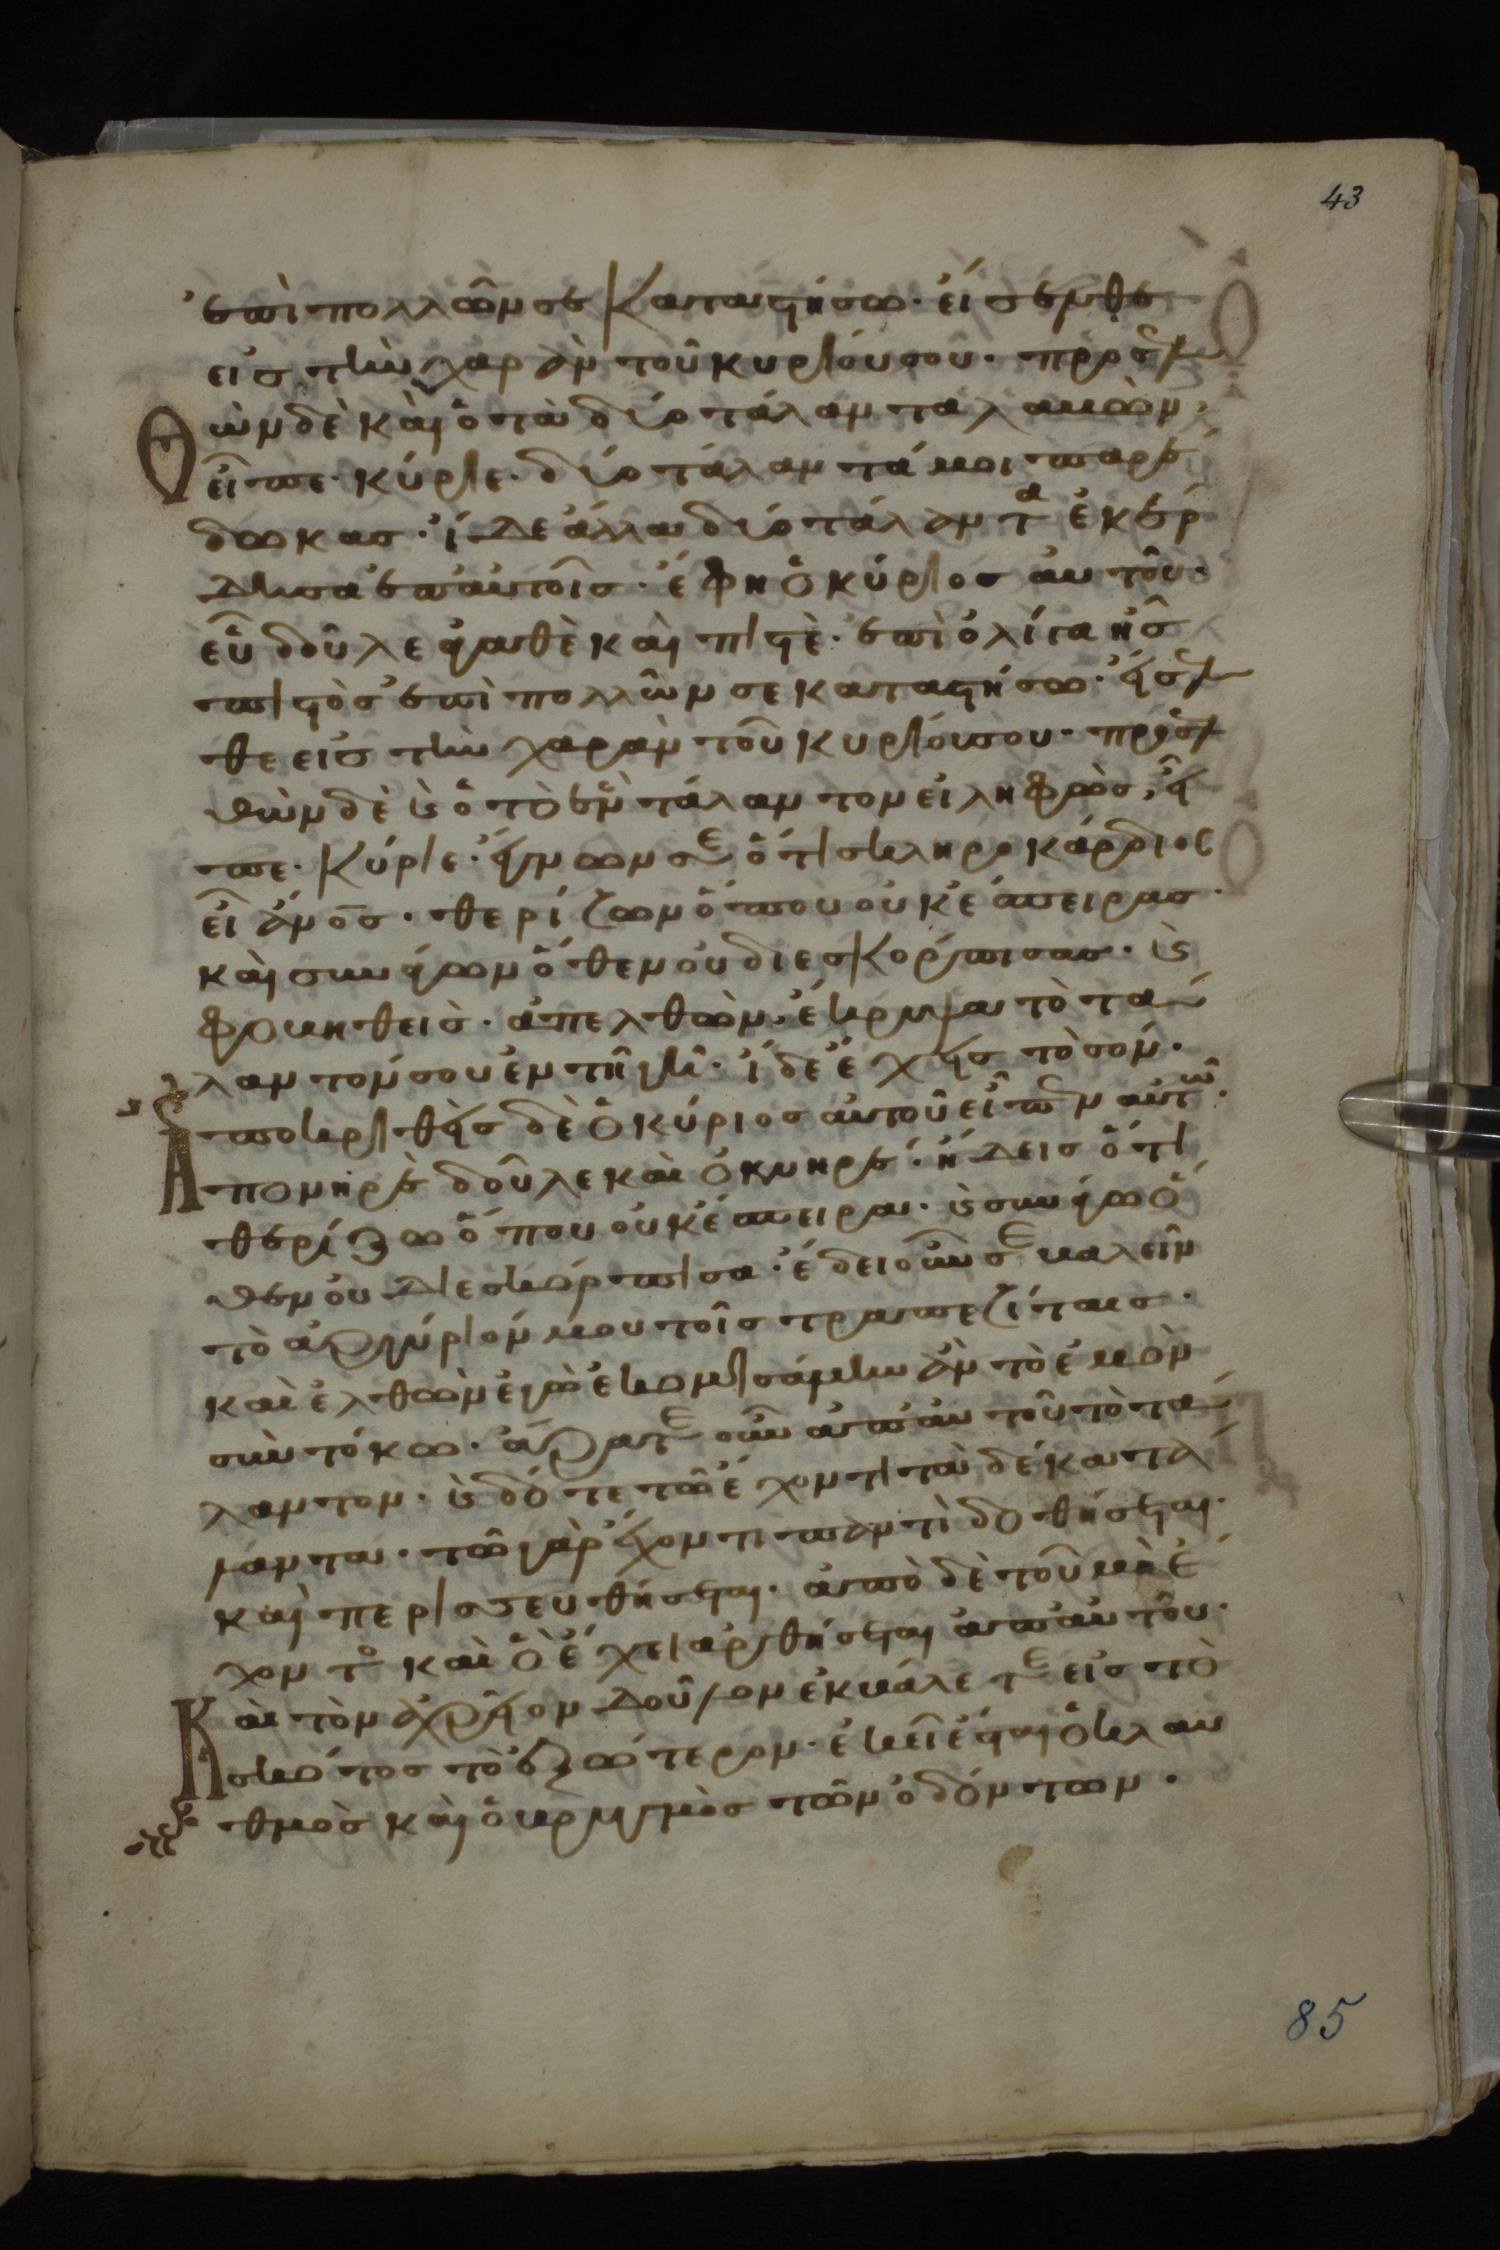 43
ἐπὶ πολλῶν σε καταστήσω· εἴσελθε
εἰς τὴν χαρὰν τοῦ κυρίου σου· προσελ
Θὼν δὲ καὶ ὁ τὰ δύο τάλαντα λαβὼν,
εἶπε· κύριε· δύο τάλαντά μοι παρέ
δωκας· ἴδε ἄλλα δύο τάλαντα ἐκέρ
δησα ἐπ' αὐτοῖς· ἔφη ὁ κύριος αὐτοῦ·
εὖ δοῦλε ἀγαθὲ καὶ πιστὲ· ἐπὶ ὀλίγα ἦς
πιστὸς ἐπὶ πολλῶν σε καταστήσω· εἴσελ
θε εἰς τὴν χαρὰν τοῦ κυρίου σου· προσελ
θὼν δὲ καὶ ὁ τὸ ἓν τάλαντον εἰληφὼς, εἶ
πε· κύριε· ἔγνων σε ὅτι σκληροκάρδιος
εἶ ἄνος· θερίζων ὅπου οὐκ ἔσπειρας·
καὶ συνάγων ὅθεν οὐ διεσκόρπισας· καὶ
φοβηθεὶς· ἀπελθὼν, ἔκρυψα τὸ τά
λαντόν σου ἐν τῇ γῇ· ἴδε ἔχεις τὸ σόν·
Ἀποκριθεὶς δὲ ὁ κύριος αὐτοῦ εἶπεν αὐτῶ·
πονηρὲ δοῦλε καὶ ὀκνηρέ· ἤδεις ὅτι
θερίζω ὅπου οὐκ ἔσπειρα· καὶ συνάγω ὅ
θεν οὐ διεσκόρπισα· ἔδει οὖν σε βαλεῖν
τὸ ἀργύριόν μου τοῖς τραπεζίταις·
καὶ ἐλθὼν ἐγὼ ἐκομισάμην ἂν τὸ ἐμὸν
σὺν τόκω· ἄρατε οὖν ἀπ' αὐτοῦ τὸ τά
λαντον· καὶ δότε τῶ ἔχοντι τὰ δέκα τά
λαντα· τῶ γὰρ ἔχοντι παντὶ δοθήσεται·
καὶ περισσευθήσεται· ἀπὸ δὲ τοῦ μὴ ἔ
χοντο καὶ ὃ ἔχει ἀρθήσεται ἀπ' αὐτοῦ·
Καὶ τὸν ἀχρεῖον δοῦλον ἐκβάλετε εἰς τὸ
σκότος τὸ ἐξώτερον· ἐκεῖ ἔσται ὁ κλαυ
θμὸς καὶ ὁ βρυγμὸς τῶν ὀδόντων·
85